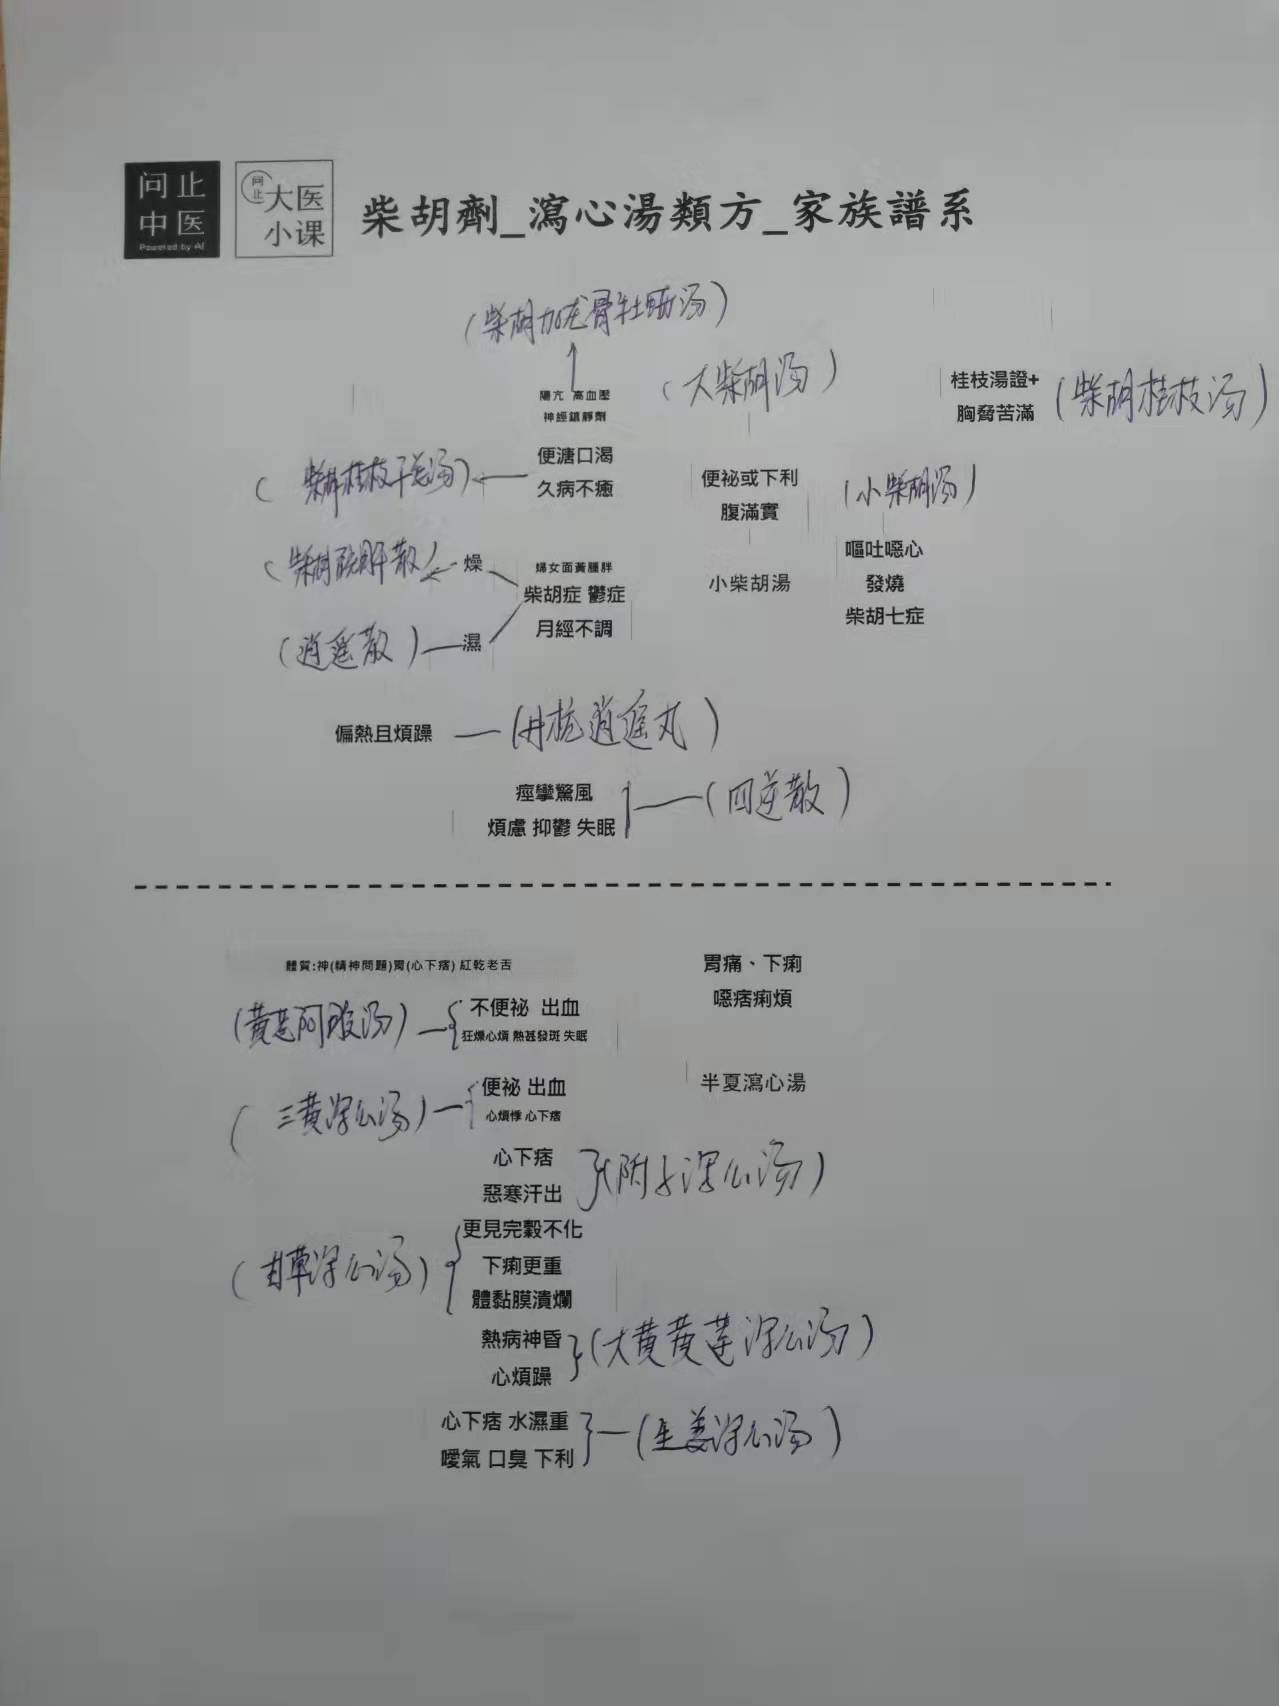 问止
中医
Powered by AI
问止
大医
小课
柴胡劑_瀉心湯類方_家族譜系
(柴胡加龙骨牡蛎汤)
陽亢 高血壓
神經鎮靜劑
(大柴胡汤)
桂枝湯證+
胸脅苦滿
(柴胡桂枝汤)
(柴胡桂枝干姜汤)
便溏口渴
久病不癒
便祕或下利
腹滿實
(小柴胡汤)
小柴胡湯
嘔吐噁心
發燒
柴胡七症
(柴胡疏肝散)
燥
婦女面黃腫胖
柴胡症 鬱症
月經不調
(逍遥散)
濕
偏熱且煩躁
(丹栀逍遥丸)
痙攣驚風
煩慮 抑鬱 失眠
(四逆散)
體質:神(精神問題)胃(心下痞) 紅乾老舌
胃痛、下痢
噁痞痢煩
(黄连阿胶汤)
不便祕 出血
狂燥心煩 熱甚發斑 失眠
半夏瀉心湯
(三黄泻心汤)
便祕 出血
心煩悸 心下痞
心下痞
惡寒汗出
(附子泻心汤)
(甘草泻心汤)
更見完穀不化
下痢更重
體黏膜潰爛
熱病神昏
心煩躁
(大黄黄莲泻心汤)
心下痞 水濕重
噯氣 口臭 下利
(生姜泻心汤)